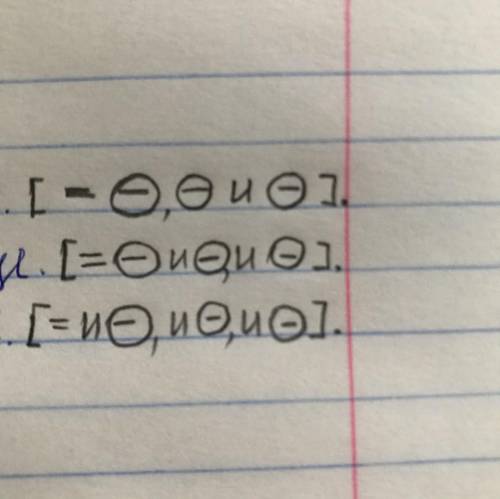 . [ - ⊖, ⊖ и ⊖ ].
. [= ⊖ и ⊖, и ⊖ ].
. [= и ⊖, и ⊖, и ⊖ ].